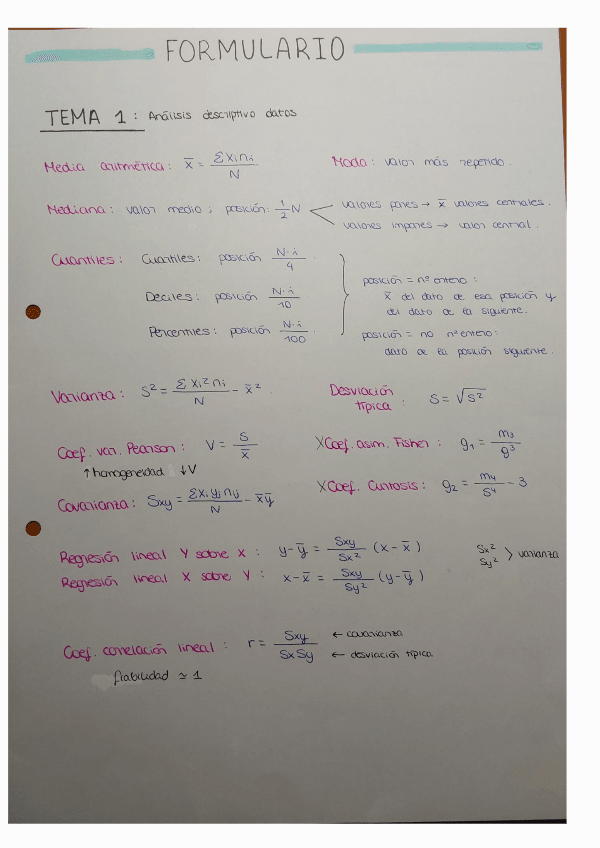 FORMULARIO
TEMA 1: Análisis descriptivo datos
Media aritmética: x̄ = Σxini / N
Moda: valor más repetido.
Mediana: valor medio; posición: 1/2 N < valores pares → x̄ valores centrales.
valores impares → valor central.
Cuantiles: Cuantiles: posición N·i / 4
Deciles: posición N·i / 10
Percentiles: posición N·i / 100
posición = nº entero:
x̄ del dato de esa posición y
del dato de la siguiente.
posición = no nº entero:
dato de la posición siguiente.
Varianza: S² = Σxi²ni / N - x̄².
Desviación típica: S = √S²
Coef. var. Pearson: V = S / x̄
↑homogeneidad ↓V
XCoef. asim. Fisher: g₁ = m₃ / g³
Covarianza: Sxy = Σxiyjnij / N - x̄ȳ
XCoef. Curtosis: g₂ = m₄ / S⁴ - 3
Regresión lineal Y sobre X: y-ȳ = Sxy / Sx² (x-x̄)
Regresión lineal X sobre Y: x-x̄ = Sxy / Sy² (y-ȳ)
Sx²
Sy² > varianza
Coef. correlación lineal: r = Sxy / SxSy
← covarianza
← desviación típica
fiabilidad ≃ 1